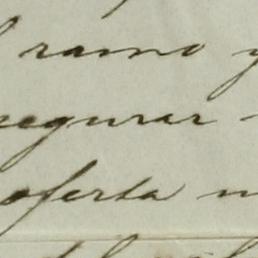 ramo y
segurar
oferta